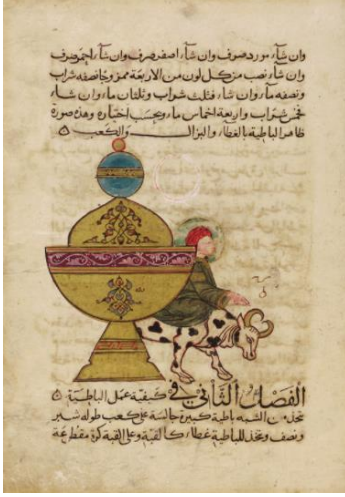 وان شآء مورد صرف وان شآء اصفر صرف وان شآء احمر صرف
وان شآء نصب من كل لون من الاربعة ممزوجا نصفه شراب
ونصفه مآء وان شآء فثلث شراب وثلثان مآء وان شآء
فخمس شراب واربعة اخماس مآء وبحسب اختياره وهذه صورة
ظاهر الباطية بالغطآء والبزال والكعب
الفصل الثاني في كيفية عمل الباطية
تتخذ من الشبه باطية كبيرة جالسة على كعب طوله شبر
ونصف وتتخذ للباطية غطآء كالقبة وعلى القبة كرة مقطوعة